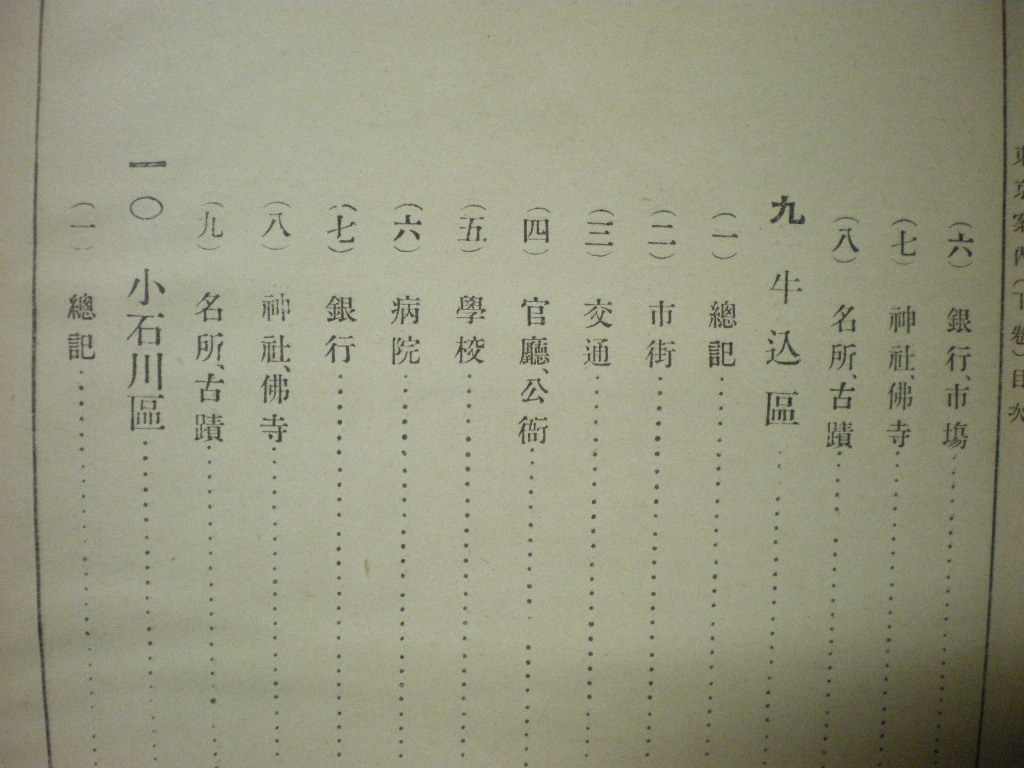 東京案內（下卷）目次
（六）銀行、市場
（七）神社、佛寺
（八）名所、古蹟
九 牛込區
（一）總記
（二）市街
（三）交通
（四）官廳、公衙
（五）學校
（六）病院
（七）銀行
（八）神社、佛寺
（九）名所、古蹟
一〇 小石川區
（一）總記